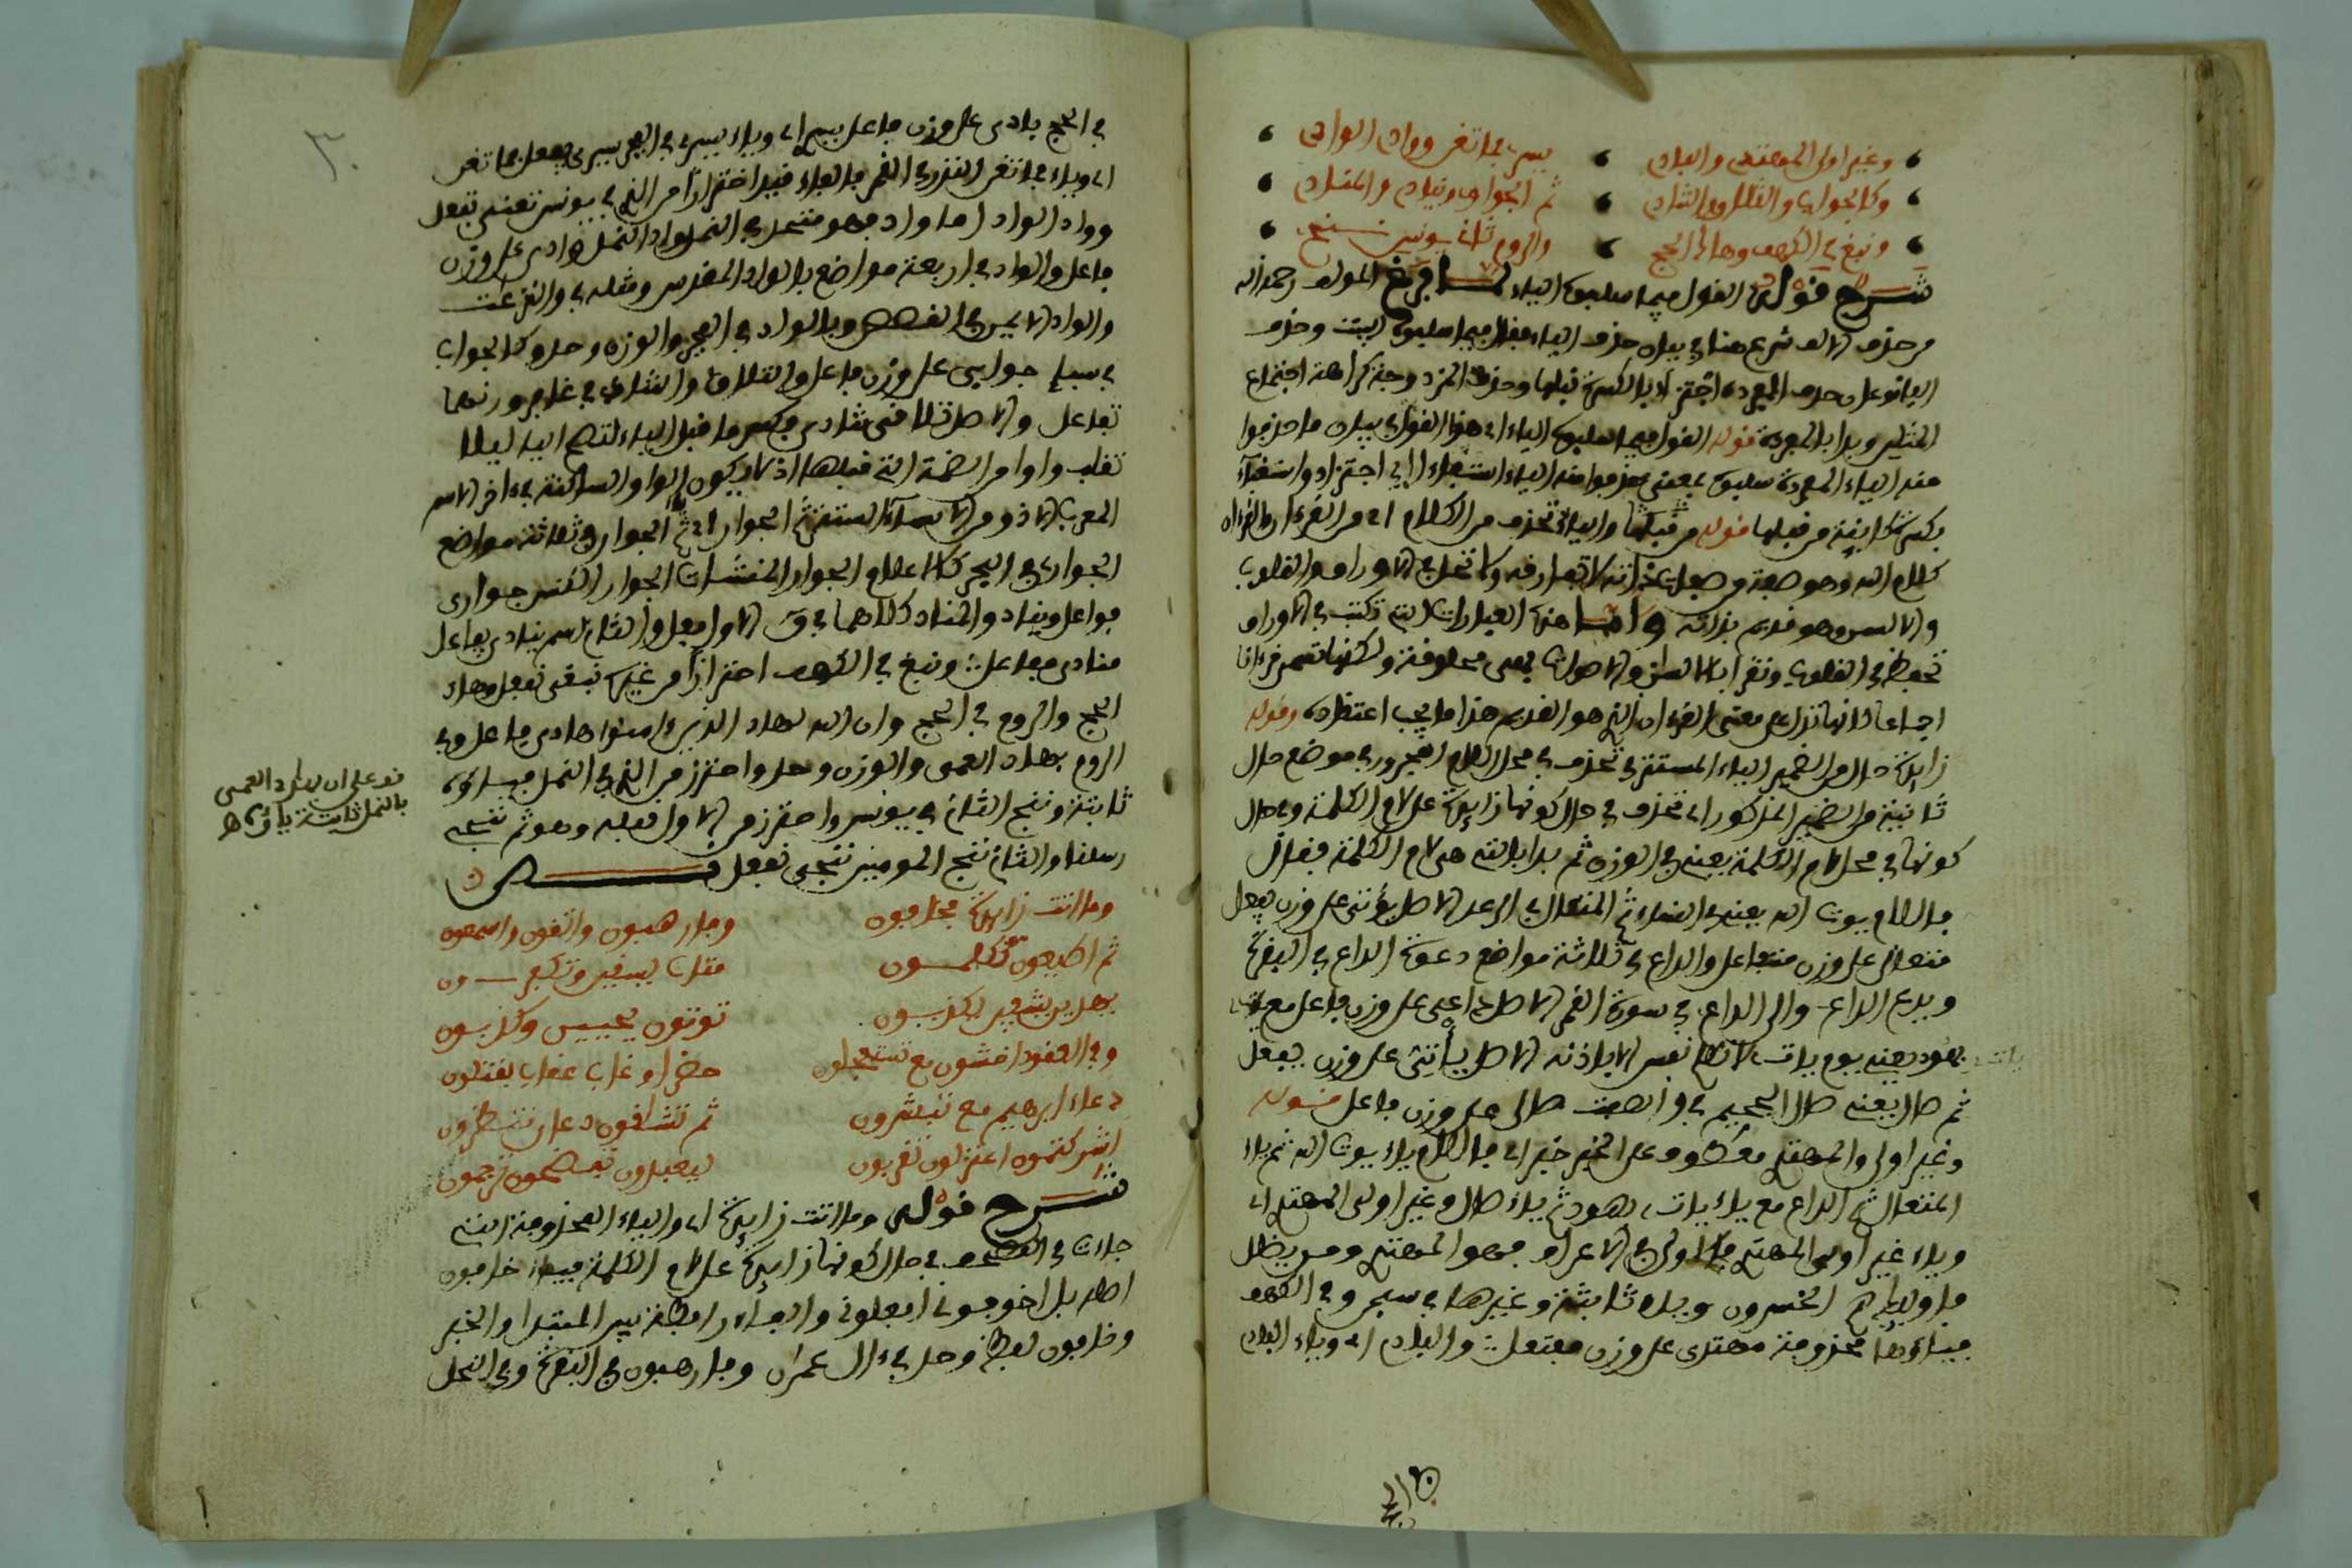 وغير اولى المهتد والباد يسر فما تغن وواد الواد
وكالجواب والتلاق والتناد ثم الجوار وبناد والمناد
ونبغ في الكهف وهاد الحج والروم ثاني يونس ننج
شرح قوله القول فيما سلبوه الياء لما فرغ المولف رحمه الله
من حذف الالف شرع هنا في بيان حذف الياء فقال فيما سلبوه اثبت وحذف
الياء نوعان حذف المفردة اجتزاء بالكسرة قبلها وحذف المزدوجة كراهة اجتماع
المثلين وبدا بالمفردة قوله القول فيما سلبوه الياء اي هذا القول في بيان ما حذفوا
منه الياء المفردة سلبوه بمعنى حذفوا منه الياء استغناء اي اجتزاء واستغناء
بكسرة كاينة من قبلها قوله من قبلها والياء تحذف من الكلام اي من القرءان والقرءان
كلام الله وهو صفة من صفات ذاته لا تفارقه ولا تحل في الاوراق والقلوب
والالسن وهو قديم بذاته واما هذه العبارات التي تكتب في الاوراق
تحفظ في القلوب وتقرا بالالسن والاصوات فهي مخلوقة ولكنها تسمى قرءانا
اجماعا لانها تدل على معنى القرءان الذي هو القديم هذا ما يجب اعتقاده وقوله
زايدة حال من الضمير الياء المستتر في تحذف في محل اللام المجرور في موضع حال
ثانية من الضمير المذكور اي تحذف في حال كونها زايدة على لام الكلمة وفي حال
كونها في محل لام الكلمة يعني في الوزن ثم بدا بالتي هي لام الكلمة فقال
فاللام يوت الله يعني في النساء ثم المتعال في الرعد الاصل يؤتي على وزن يفعل
متعالي على وزن متفاعل والداع في ثلاثة مواضع دعوة الداع في البقرة
ويدع الداع والى الداع في سورة القمر الاصل داعي على وزن فاعل مع يات
بهود يعني يوم يات لا تكلم نفس الا باذنه الاصل يأتي على وزن يفعل
ثم صال يعني صال الجحيم في والصفت صالي على وزن فاعل قوله
وغير اولى والمهتد معطوف على الخبر خبر اي فاللام ياء يوت الله ثم ياء
المتعال ثم الداع مع ياء يات بهود ثم ياء صال وغير اولى المهتد اي
وياء غير اولى المهتد فالاولى في الاعراف فهو المهتد ومن يضلل
فاوليك هم الخسرون وياؤه ثابتة وغيرها في سبحن وفي الكهف
فياءها محذوفة مهتدي على وزن مفتعل والباد اي وياء الباد
في الحج بادي على وزن فاعل يسر اي وياء يسر في الفجر يسري يفعل فما تغن
اي وياء فما تغن النذر في القمر بالفاء قيد احترازا من الذي في يونس تغني تفعل
وواد الواد اما واد فهو متحد في النمل واد النمل وادي على وزن
فاعل والواد في اربعة مواضع بالواد المقدس ومثله في والنزعت
والواد الايمن في القصص وبالواد في الفجر والوزن واحد وكالجواب
في سبا جوابي على وزن فاعل والتلاق والتناد في غافر وزنهما
تفاعل والاصل تلاقي تنادي وكسر ما قبل الياء لتصح الياء ليلا
تقلب واوا من الضمة التي قبلها اذ لا يكون الواو الساكنة في ءاخر الاسم
المعرب الا ذو من الاسماء الستة ثم الجوار اي ثم الجوار في ثلاثة مواضع
الجوار في البحر كالاعلام الجوار المنشات الجوار الكنس جواري
فواعل ويناد والمناد كلاهما في ق الاول فعل والثاني اسم ينادي يفاعل
منادي مفاعل ونبغ في الكهف احترازا من غيره نبغي نفعل وهاد
الحج والروم في الحج وان الله لهاد الذين ءامنوا هادي فاعل وفي
الروم بهاد العمي والوزن واحد واحترز من الذي في النمل فياؤه
ثابتة وننج الثاني في يونس واحترز من الاول فعله وهو ثم ننجي
رسلنا والثاني ننج المومنين ننجي نفعل قوله
وما اتت زايدة فخافون وفارهبون واتقون واسمعون
ثم اطيعون تكلمون متاب يسقين وتكفرون
يهدين يشفين يكذبون توتون يحيين وكذبون
وفي العقود اخشون مع تستعجلون حضرا وغاب عقاب يقتلون
دعاء ابرهيم مع تبشرون ثم تشاقون دعان تنظرون
اشركتمون اعتزلون تقربون ليعبدون تفضحون ترجمون
شرح قوله وما اتت زايدة اي والياء المحذوفة التي
جاءت في المصحف في حال كونها زايدة على لام الكلمة فياء خافون
اصله خافوني افعلوني والفاء رابطة بين المبتدا والخبر
وخافون لفظ واحد في ءال عمران وفارهبون في البقرة وفي النحل
فدعلى ان بهاد العمي
بالنمل ثابتة ياؤه اه
٣٠
في الحج